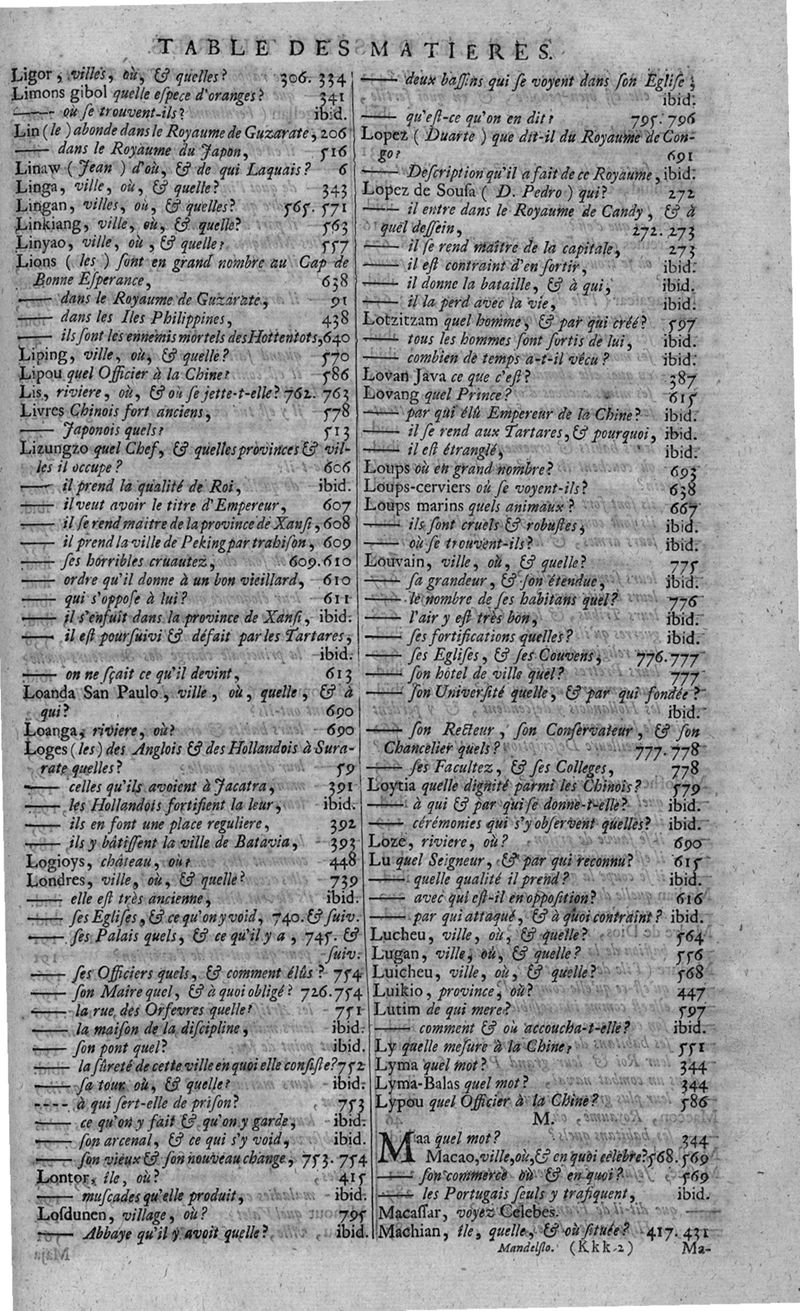 TABLE DES MATIERES.
Ligor, villes, où, & quelles? 306. 334
Limons gibol quelle eſpece d'oranges? 341
—— où ſe trouvent-ils? ibid.
Lin (le) abonde dans le Royaume de Guzarate, 206
—— dans le Royaume du Japon, 516
Linaw (Jean) d'où, & de qui Laquais? 6
Linga, ville, où, & quelle? 343
Lingan, villes, où, & quelles? 565. 571
Linkiang, ville, où, & quelle? 563
Linyao, ville, où, & quelle? 557
Lions (les) ſont en grand nombre au Cap de
Bonne Eſperance, 638
—— dans le Royaume de Guzarate, 91
—— dans les Iles Philippines, 438
—— ils ſont les ennemis mortels des Hottentots, 640
Liping, ville, où, & quelle? 570
Lipou quel Officier à la Chine? 586
Lis, riviere, où, & où ſe jette-t-elle? 762. 763
Livres Chinois fort anciens, 578
—— Japonois quels? 513
Lizungzo quel Chef, & quelles provinces & vil-
les il occupe? 606
—— il prend la qualité de Roi, ibid.
—— il veut avoir le titre d'Empereur, 607
—— il ſe rend maitre de la province de Xanſi, 608
—— il prend la ville de Peking par trahiſon, 609
—— ſes horribles cruautez, 609. 610
—— ordre qu'il donne à un bon vieillard, 610
—— qui s'oppoſe à lui? 611
—— il s'enfuit dans la province de Xanſi, ibid.
—— il eſt pourſuivi & défait par les Tartares,
ibid.
—— on ne ſçait ce qu'il devint, 613
Loanda San Paulo, ville, où, quelle, & à
qui? 690
Loanga, riviere, où? 690
Loges (les) des Anglois & des Hollandois à Sura-
rate quelles? 59
—— celles qu'ils avoient à Jacatra, 391
—— les Hollandois fortifient la leur, ibid.
—— ils en font une place reguliere, 392
—— ils y bâtiſſent la ville de Batavia, 393
Logioys, château, où? 448
Londres, ville, où, & quelle? 739
—— elle eſt très ancienne, ibid.
—— ſes Egliſes, & ce qu'on y void, 740. & ſuiv.
—— ſes Palais quels, & ce qu'il y a, 745. &
ſuiv.
—— ſes Officiers quels, & comment élûs? 754
—— ſon Maire quel, & à quoi obligé? 726. 754
—— la rue des Orfevres quelle? 751
—— la maiſon de la diſcipline, ibid.
—— ſon pont quel? ibid.
—— la ſûreté de cette ville en quoi elle conſiſte? 752
—— ſa tour où, & quelle? ibid.
---- à qui ſert-elle de priſon? 753
—— ce qu'on y fait & qu'on y garde, ibid.
—— ſon arcenal, & ce qui s'y void, ibid.
—— ſon vieux & ſon nouveau change, 753. 754
Lontor, île, où? 415
—— muſcades qu'elle produit, ibid.
Loſdunen, village, où? 795
—— Abbaye qu'il y avoit quelle? ibid.
—— deux baſſins qui ſe voyent dans ſon Egliſe,
ibid.
—— qu'eſt-ce qu'on en dit? 795. 796
Lopez (Duarte) que dit-il du Royaume de Con-
go? 691
—— Deſcription qu'il a fait de ce Royaume, ibid.
Lopez de Souſa (D. Pedro) qui? 272
—— il entre dans le Royaume de Candy, & à
quel deſſein, 272. 273
—— il ſe rend maître de la capitale, 273
—— il eſt contraint d'en ſortir, ibid.
—— il donne la bataille, & à qui, ibid.
—— il la perd avec la vie, ibid.
Lotzitzam quel homme, & par qui créé? 597
—— tous les hommes ſont ſortis de lui, ibid.
—— combien de temps a-t-il vécu? ibid.
Lovan Java ce que c'eſt? 387
Lovang quel Prince? 615
—— par qui élû Empereur de la Chine? ibid.
—— il ſe rend aux Tartares, & pourquoi, ibid.
—— il eſt étranglé, ibid.
Loups où en grand nombre? 693
Loups-cerviers où ſe voyent-ils? 638
Loups marins quels animaux? 667
—— ils ſont cruels & robuſtes, ibid.
—— où ſe trouvent-ils? ibid.
Louvain, ville, où, & quelle? 775
—— ſa grandeur, & ſon étendue, ibid.
—— le nombre de ſes habitans quel? 776
—— l'air y eſt très bon, ibid.
—— ſes fortifications quelles? ibid.
—— ſes Egliſes, & ſes Couvens, 776. 777
—— ſon hôtel de ville quel? 777
—— ſon Univerſité quelle, & par qui fondée?
ibid.
—— ſon Recteur, ſon Conſervateur, & ſon
Chancelier quels? 777. 778
—— ſes Facultez, & ſes Colleges, 778
Loytia quelle dignité parmi les Chinois? 579
—— à qui & par qui ſe donne-t-elle? ibid.
—— cérémonies qui s'y obſervent quelles? ibid.
Loze, riviere, où? 690
Lu quel Seigneur, & par qui reconnu? 615
—— quelle qualité il prend? ibid.
—— avec qui eſt-il en oppoſition? 616
—— par qui attaqué, & à quoi contraint? ibid.
Lucheu, ville, où, & quelle? 564
Lugan, ville, où, & quelle? 556
Luicheu, ville, où, & quelle? 568
Luikio, province, où? 447
Lutim de qui mere? 597
—— comment & où accoucha-t-elle? ibid.
Ly quelle meſure à la Chine? 551
Lyma quel mot? 344
Lyma-Balas quel mot? 344
Lypou quel Officier à la Chine? 586
M.
Maa quel mot? 344
Macao, ville, où, & en quoi célebre? 568. 569
—— ſon commerce où & en quoi? 569
—— les Portugais ſeuls y trafiquent, ibid.
Macaſſar, voyez Celebes.
Machian, île, quelle, & où ſituée? 417. 431
Mandelſlo. (Kkk 2) Ma-